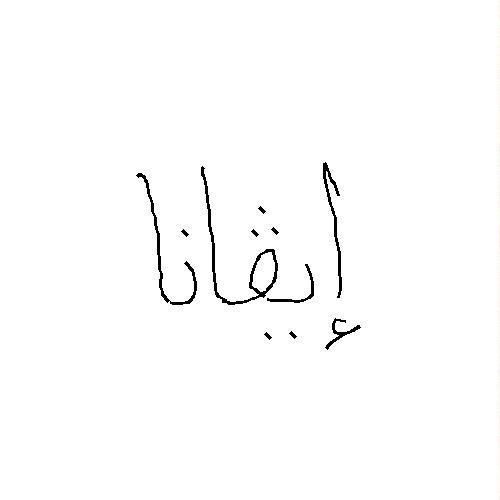 إيڤانا